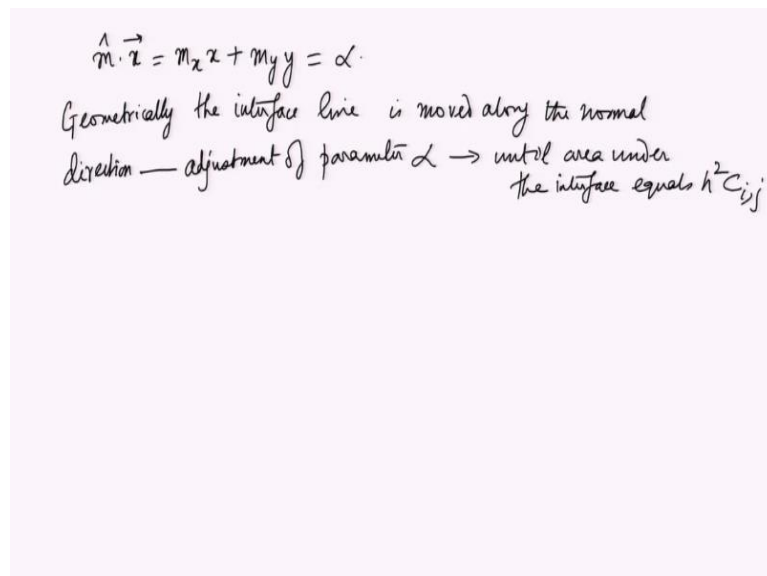 m̂·x⃗ = mₓ x + m_y y = α.
Geometrically the interface line is moved along the normal
direction — adjustment of parameter α → until area under
the interface equals h²Cᵢ,ⱼ